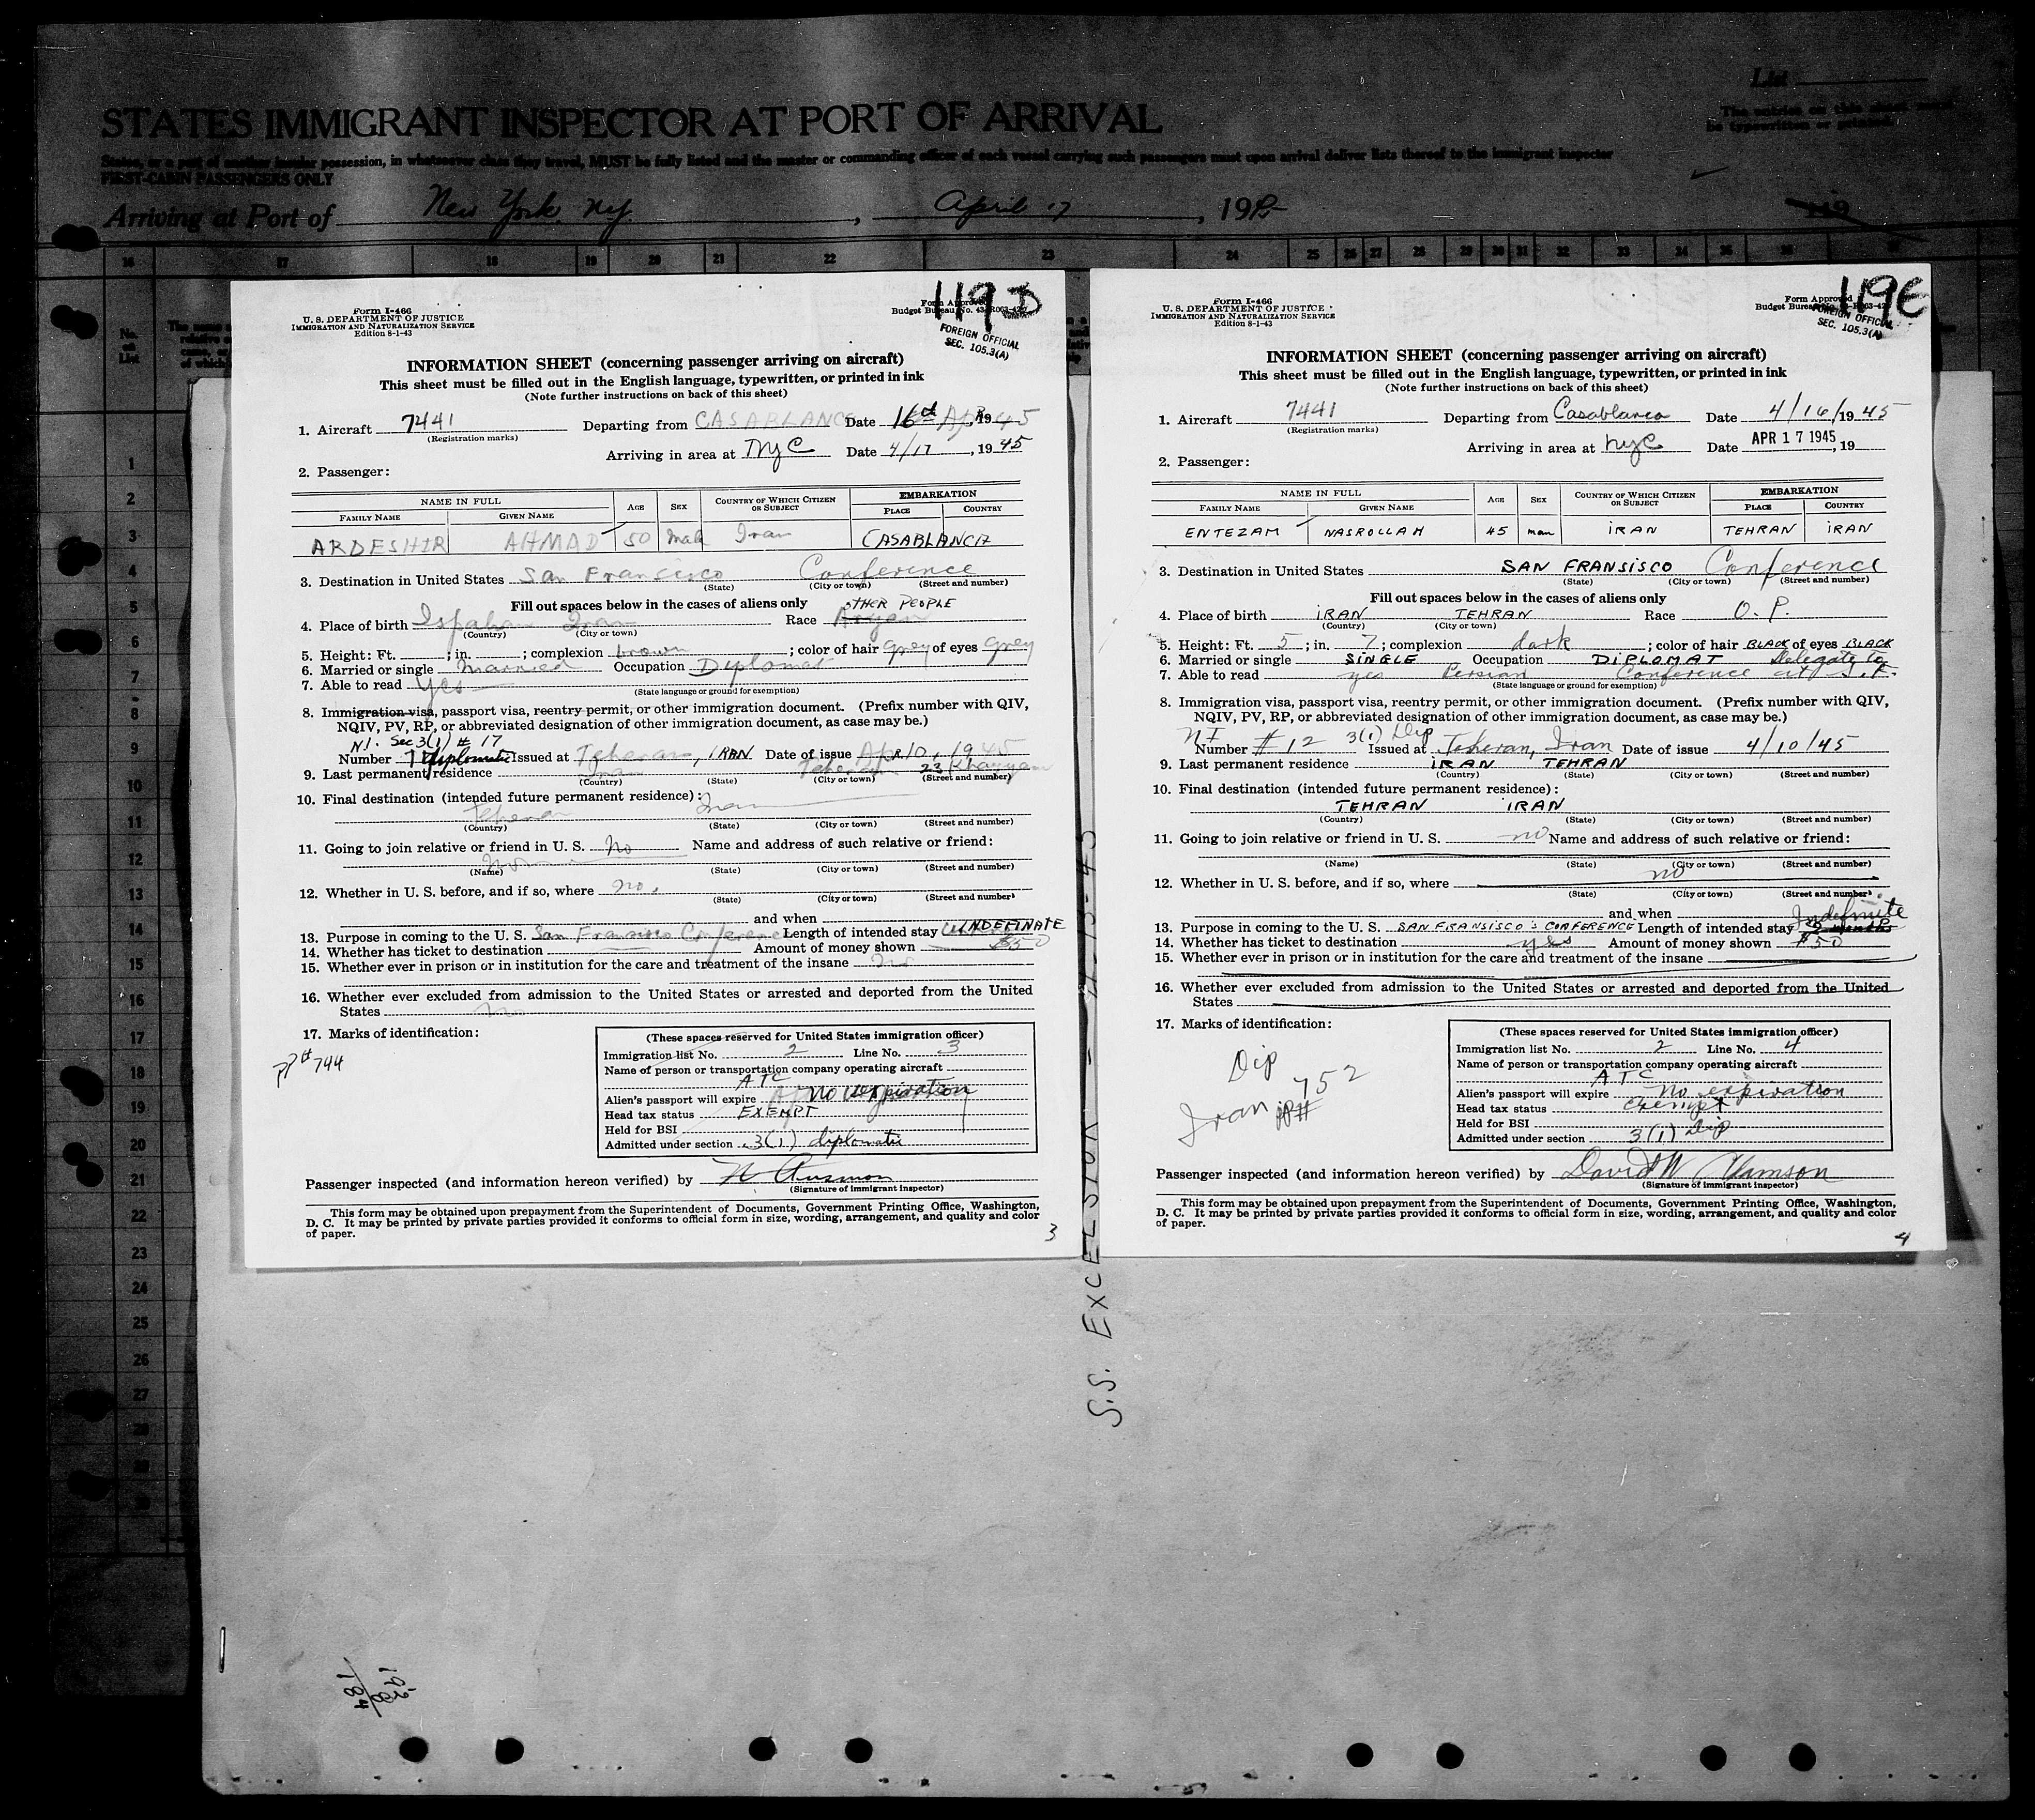 List
The entries on this sheet must
be typewritten or printed.
STATES IMMIGRANT INSPECTOR AT PORT OF ARRIVAL
States, or a part of another insular possession, in whatsoever class they travel, MUST be fully listed and the master or commanding officer of each vessel carrying such passengers must upon arrival deliver lists thereof to the immigrant inspector
FIRST-CABIN PASSENGERS ONLY
Arriving at Port of New York, NY, April 17, 19
119
16 17 18 19 20 21 22 23 24 25 26 27 28 29 30 31 32 33 34 35 36
No. on List
1
2
3
4
5
6
7
8
9
10
11
12
13
14
15
16
17
18
19
20
21
22
23
24
25
26
27
28
29
30
119D
Form I-466
U. S. DEPARTMENT OF JUSTICE
IMMIGRATION AND NATURALIZATION SERVICE
Edition 8-1-43
Form Approved
Budget Bureau No. 43-R003-42
FOREIGN OFFICIAL
SEC. 105.3(A)
INFORMATION SHEET (concerning passenger arriving on aircraft)
This sheet must be filled out in the English language, typewritten, or printed in ink
(Note further instructions on back of this sheet)
1. Aircraft 7441 Departing from CASABLANCA Date 16 Apr, 1945
(Registration marks)
Arriving in area at NYC Date 4/17, 1945
2. Passenger:
NAME IN FULL AGE SEX COUNTRY OF WHICH CITIZEN OR SUBJECT EMBARKATION
FAMILY NAME GIVEN NAME PLACE COUNTRY
ARDESHIR AHMAD 50 Male Iran CASABLANCA
3. Destination in United States San Francisco Conference
(State) (City or town) (Street and number)
Fill out spaces below in the cases of aliens only OTHER PEOPLE
4. Place of birth Ispahan Iran Race Aryan
(Country) (City or town)
5. Height: Ft. ; in. ; complexion brown ; color of hair grey of eyes grey
6. Married or single Married Occupation Diplomat
7. Able to read yes
(State language or ground for exemption)
8. Immigration visa, passport visa, reentry permit, or other immigration document. (Prefix number with QIV,
NQIV, PV, RP, or abbreviated designation of other immigration document, as case may be.)
NI. Sec 3(1) # 17
Number 17 diplomatic Issued at Teheran, IRAN Date of issue Apr 10, 1945
9. Last permanent residence Iran Teheran 23 Khayyam
(Country) (State) (City or town) (Street and number)
10. Final destination (intended future permanent residence):
Teheran Iran
(Country) (State) (City or town) (Street and number)
11. Going to join relative or friend in U. S. No Name and address of such relative or friend:
No
(Name) (State) (City or town) (Street and number)
12. Whether in U. S. before, and if so, where no.
(State) (City or town) (Street and number)
and when
13. Purpose in coming to the U. S. San Francisco Conference Length of intended stay INDEFINATE
14. Whether has ticket to destination Amount of money shown $50
15. Whether ever in prison or in institution for the care and treatment of the insane no
16. Whether ever excluded from admission to the United States or arrested and deported from the United
States no
17. Marks of identification:
PP# 744
(These spaces reserved for United States immigration officer)
Immigration list No. 2 Line No. 3
Name of person or transportation company operating aircraft
ATC
Alien's passport will expire no expiration
Head tax status EXEMPT
Held for BSI
Admitted under section 3(1) diplomatic
Passenger inspected (and information hereon verified) by
(Signature of immigrant inspector)
This form may be obtained upon prepayment from the Superintendent of Documents, Government Printing Office, Washington,
D. C. It may be printed by private parties provided it conforms to official form in size, wording, arrangement, and quality and color
of paper.
3
119E
Form I-466
U. S. DEPARTMENT OF JUSTICE
IMMIGRATION AND NATURALIZATION SERVICE
Edition 8-1-43
Form Approved
Budget Bureau No. 43-R003-42
FOREIGN OFFICIAL
SEC. 105.3(A)
INFORMATION SHEET (concerning passenger arriving on aircraft)
This sheet must be filled out in the English language, typewritten, or printed in ink
(Note further instructions on back of this sheet)
1. Aircraft 7441 Departing from Casablanca Date 4/16/1945
(Registration marks)
Arriving in area at nyc Date APR 17 1945, 19
2. Passenger:
NAME IN FULL AGE SEX COUNTRY OF WHICH CITIZEN OR SUBJECT EMBARKATION
FAMILY NAME GIVEN NAME PLACE COUNTRY
ENTEZAM NASROLLAH 45 man iRAN TEHRAN iRAN
3. Destination in United States SAN FRANSISCO Conference
(State) (City or town) (Street and number)
Fill out spaces below in the cases of aliens only
4. Place of birth iRAN TEHRAN Race O.P.
(Country) (City or town)
5. Height: Ft. 5 ; in. 7 ; complexion dark ; color of hair BLACK of eyes BLACK
6. Married or single SINGLE Occupation DIPLOMAT Delegate to
7. Able to read yes Persian Conference at S.F.
(State language or ground for exemption)
8. Immigration visa, passport visa, reentry permit, or other immigration document. (Prefix number with QIV,
NQIV, PV, RP, or abbreviated designation of other immigration document, as case may be.)
NI 3(1) Dip
Number # 12 Issued at Teheran, Iran Date of issue 4/10/45
9. Last permanent residence iRAN TEHRAN
(Country) (State) (City or town) (Street and number)
10. Final destination (intended future permanent residence):
TEHRAN IRAN
(Country) (State) (City or town) (Street and number)
11. Going to join relative or friend in U. S. no Name and address of such relative or friend:
(Name) (State) (City or town) (Street and number)
12. Whether in U. S. before, and if so, where no
(State) (City or town) (Street and number)
and when
Indefinite
13. Purpose in coming to the U. S. SAN FRANSISCO'S CONFERENCE Length of intended stay
14. Whether has ticket to destination yes Amount of money shown $50
15. Whether ever in prison or in institution for the care and treatment of the insane
16. Whether ever excluded from admission to the United States or arrested and deported from the United
States
17. Marks of identification:
Dip
Iran PP# 752
(These spaces reserved for United States immigration officer)
Immigration list No. 2 Line No. 4
Name of person or transportation company operating aircraft
ATC
Alien's passport will expire No expiration
Head tax status Exempt
Held for BSI
Admitted under section 3(1) Dip
Passenger inspected (and information hereon verified) by David W
(Signature of immigrant inspector)
This form may be obtained upon prepayment from the Superintendent of Documents, Government Printing Office, Washington,
D. C. It may be printed by private parties provided it conforms to official form in size, wording, arrangement, and quality and color
of paper.
4
S.S. EXCELSIOR - 4-15-45